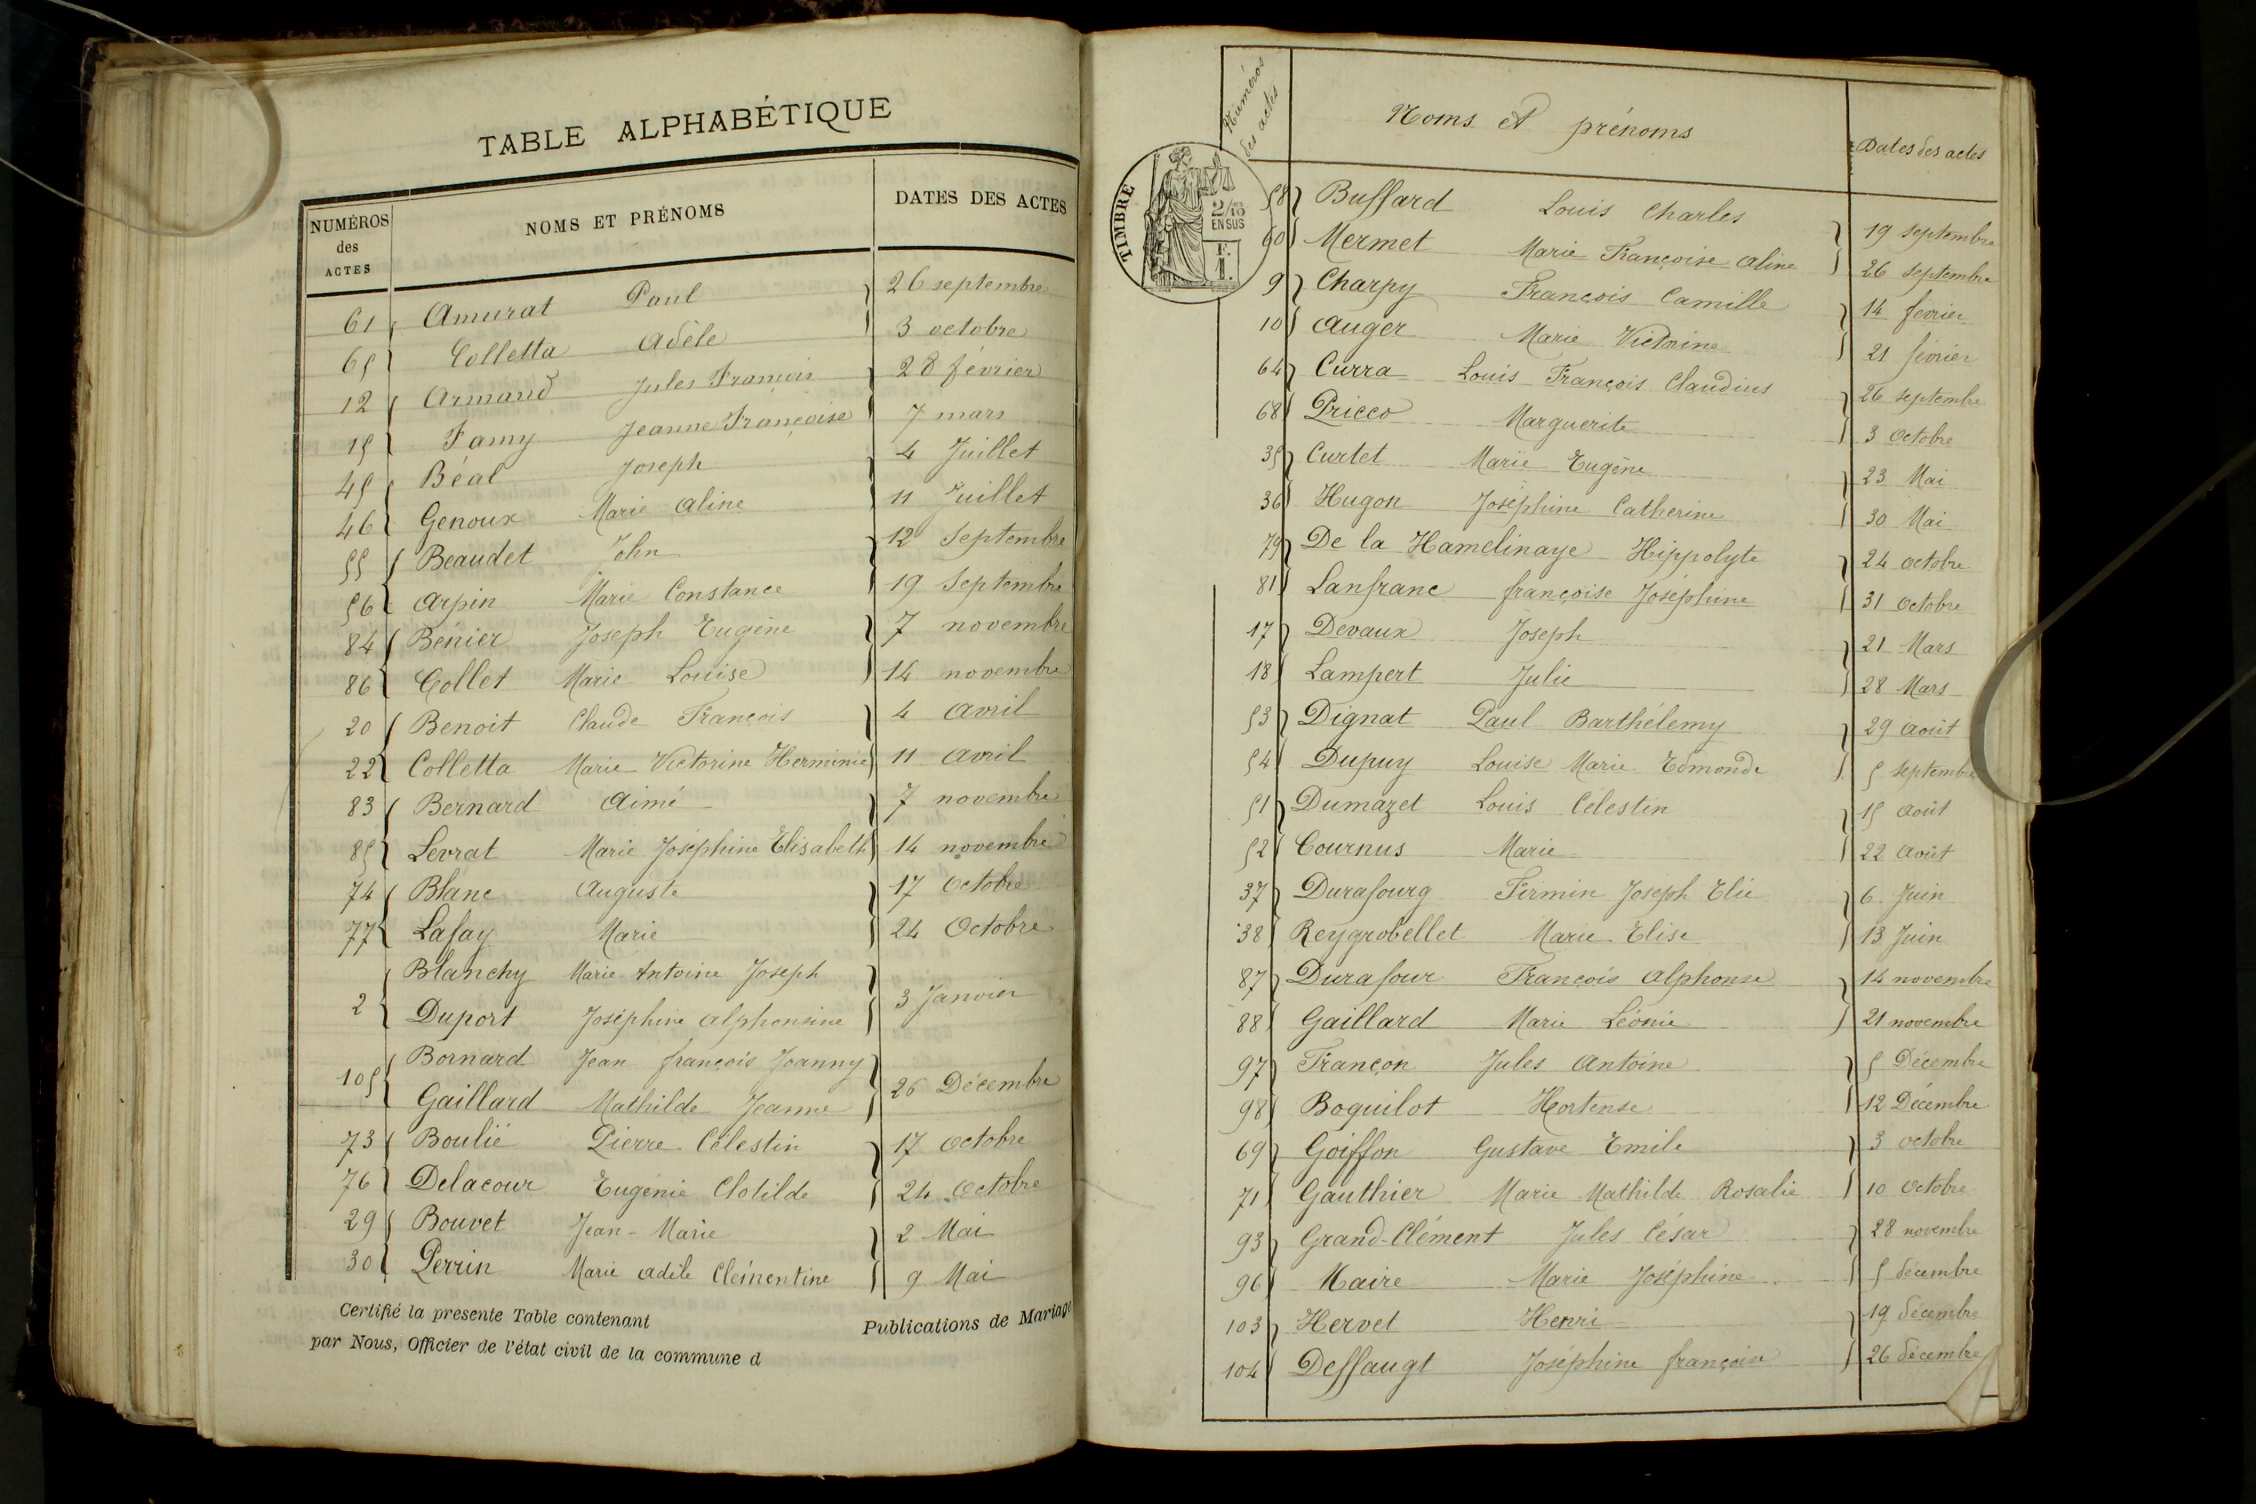 TABLE ALPHABÉTIQUE
NUMÉROS des ACTES NOMS ET PRÉNOMS DATES DES ACTES
61 Amurat Paul 26 septembre
65 Colletta Adèle 3 octobre
12 Armand Jules François 28 février
15 Famy Jeanne Françoise 7 mars
45 Béal Joseph 4 Juillet
46 Genoux Marie Aline 11 Juillet
55 Beaudet John 12 Septembre
56 Arpin Marie Constance 19 Septembre
84 Bénier Joseph Eugène 7 novembre
86 Collet Marie Louise 14 novembre
20 Benoit Claude François 4 Avril
22 Colletta Marie Victorine Herminie 11 Avril
83 Bernard Aimé 7 novembre
85 Levrat Marie Joséphine Elisabeth 14 novembre
74 Blanc Auguste 17 Octobre
77 Lafay Marie 24 Octobre
Blanchy Marie Antoine Joseph
2 3 Janvier
Duport Joséphine Alphonsine
Bornard Jean françois Joanny
105 26 Décembre
Gaillard Mathilde Jeanne
73 Boulié Pierre Célestin 17 octobre
76 Delacour Eugénie Clotilde 24 octobre
29 Bouvet Jean-Marie 2 Mai
30 Perrin Marie Adèle Clémentine 9 Mai
Certifié la presente Table contenant Publications de Mariage
par Nous, Officier de l'état civil de la commune d
Numéros des actes Noms et prénoms Dates des actes
TIMBRE
2/10 EN SUS
F. 1.
58 Buffard Louis Charles 19 septembre
60 Mermet Marie Françoise Aline 26 septembre
9 Charpy François Camille 14 février
10 Auger Marie Victorine 21 février
64 Curra Louis François Claudius 26 septembre
68 Pricco Marguerite 3 octobre
35 Curtet Marie Eugène 23 Mai
36 Hugon Joséphine Catherine 30 Mai
79 De la Hamelinaye Hippolyte 24 octobre
81 Lanfranc françoise Joséphine 31 octobre
17 Devaux Joseph 21 Mars
18 Lampert Julie 28 Mars
53 Dignat Paul Barthélemy 29 août
54 Dupuy Louise Marie Edmonde 5 septembre
51 Dumazet Louis Célestin 15 août
52 Cournus Marie 22 août
37 Durafourg Firmin Joseph Elie 6 Juin
38 Reygrobellet Marie Elise 13 Juin
87 Durafour François Alphonse 14 novembre
88 Gaillard Marie Léonie 21 novembre
97 Françon Jules Antoine 5 Décembre
98 Boguilot Hortense 12 Décembre
69 Goiffon Gustave Emile 3 octobre
71 Gauthier Marie Mathilde Rosalie 10 octobre
93 Grand-Clément Jules César 28 novembre
96 Maire Marie Joséphine 5 décembre
103 Hervet Henri 19 décembre
104 Deffaugt Joséphine françoise 26 décembre